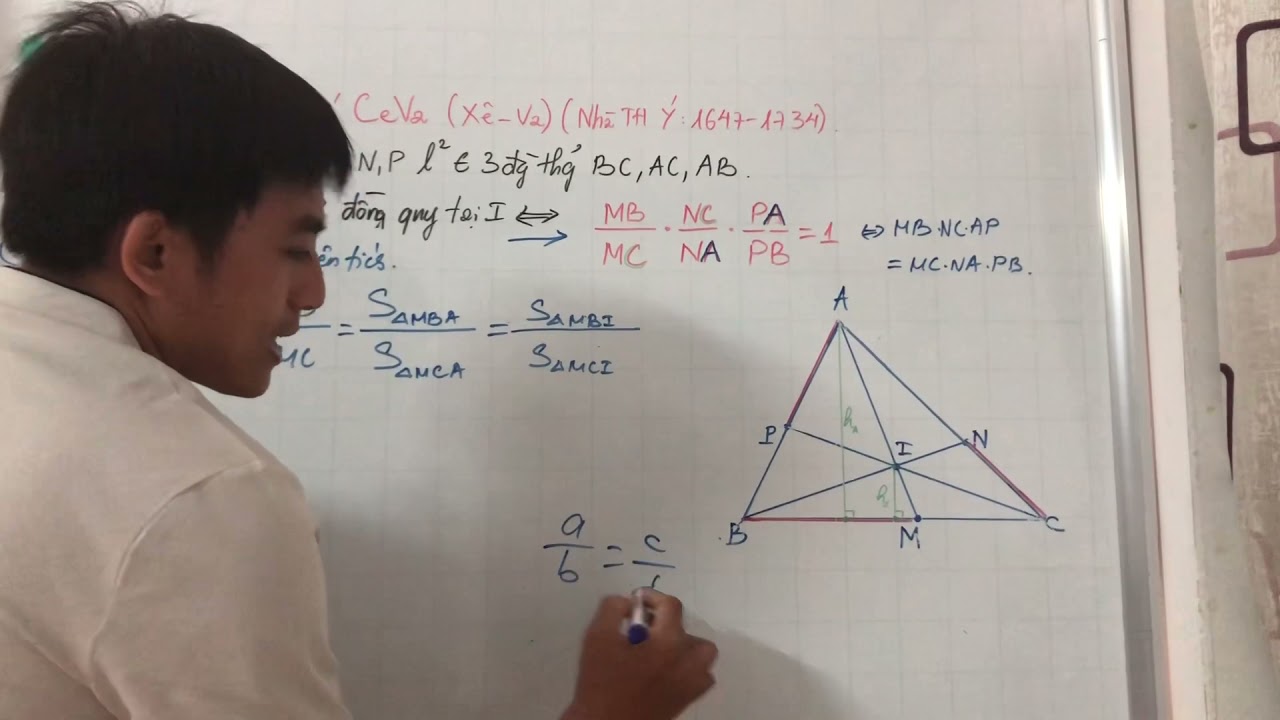 CeVa (Xê-Va) (Nhà TH Ý: 1647-1734)
N, P l² ∈ 3 đg thg BC, AC, AB.
đồng quy tại I ⇔ MB/MC · NC/NA · PA/PB = 1 ⇔ MB·NC·AP
→ = MC·NA·PB.
MC = S△MBA/S△MCA = S△MBI/S△MCI
A
P
N
I
B
M
C
a/b = c